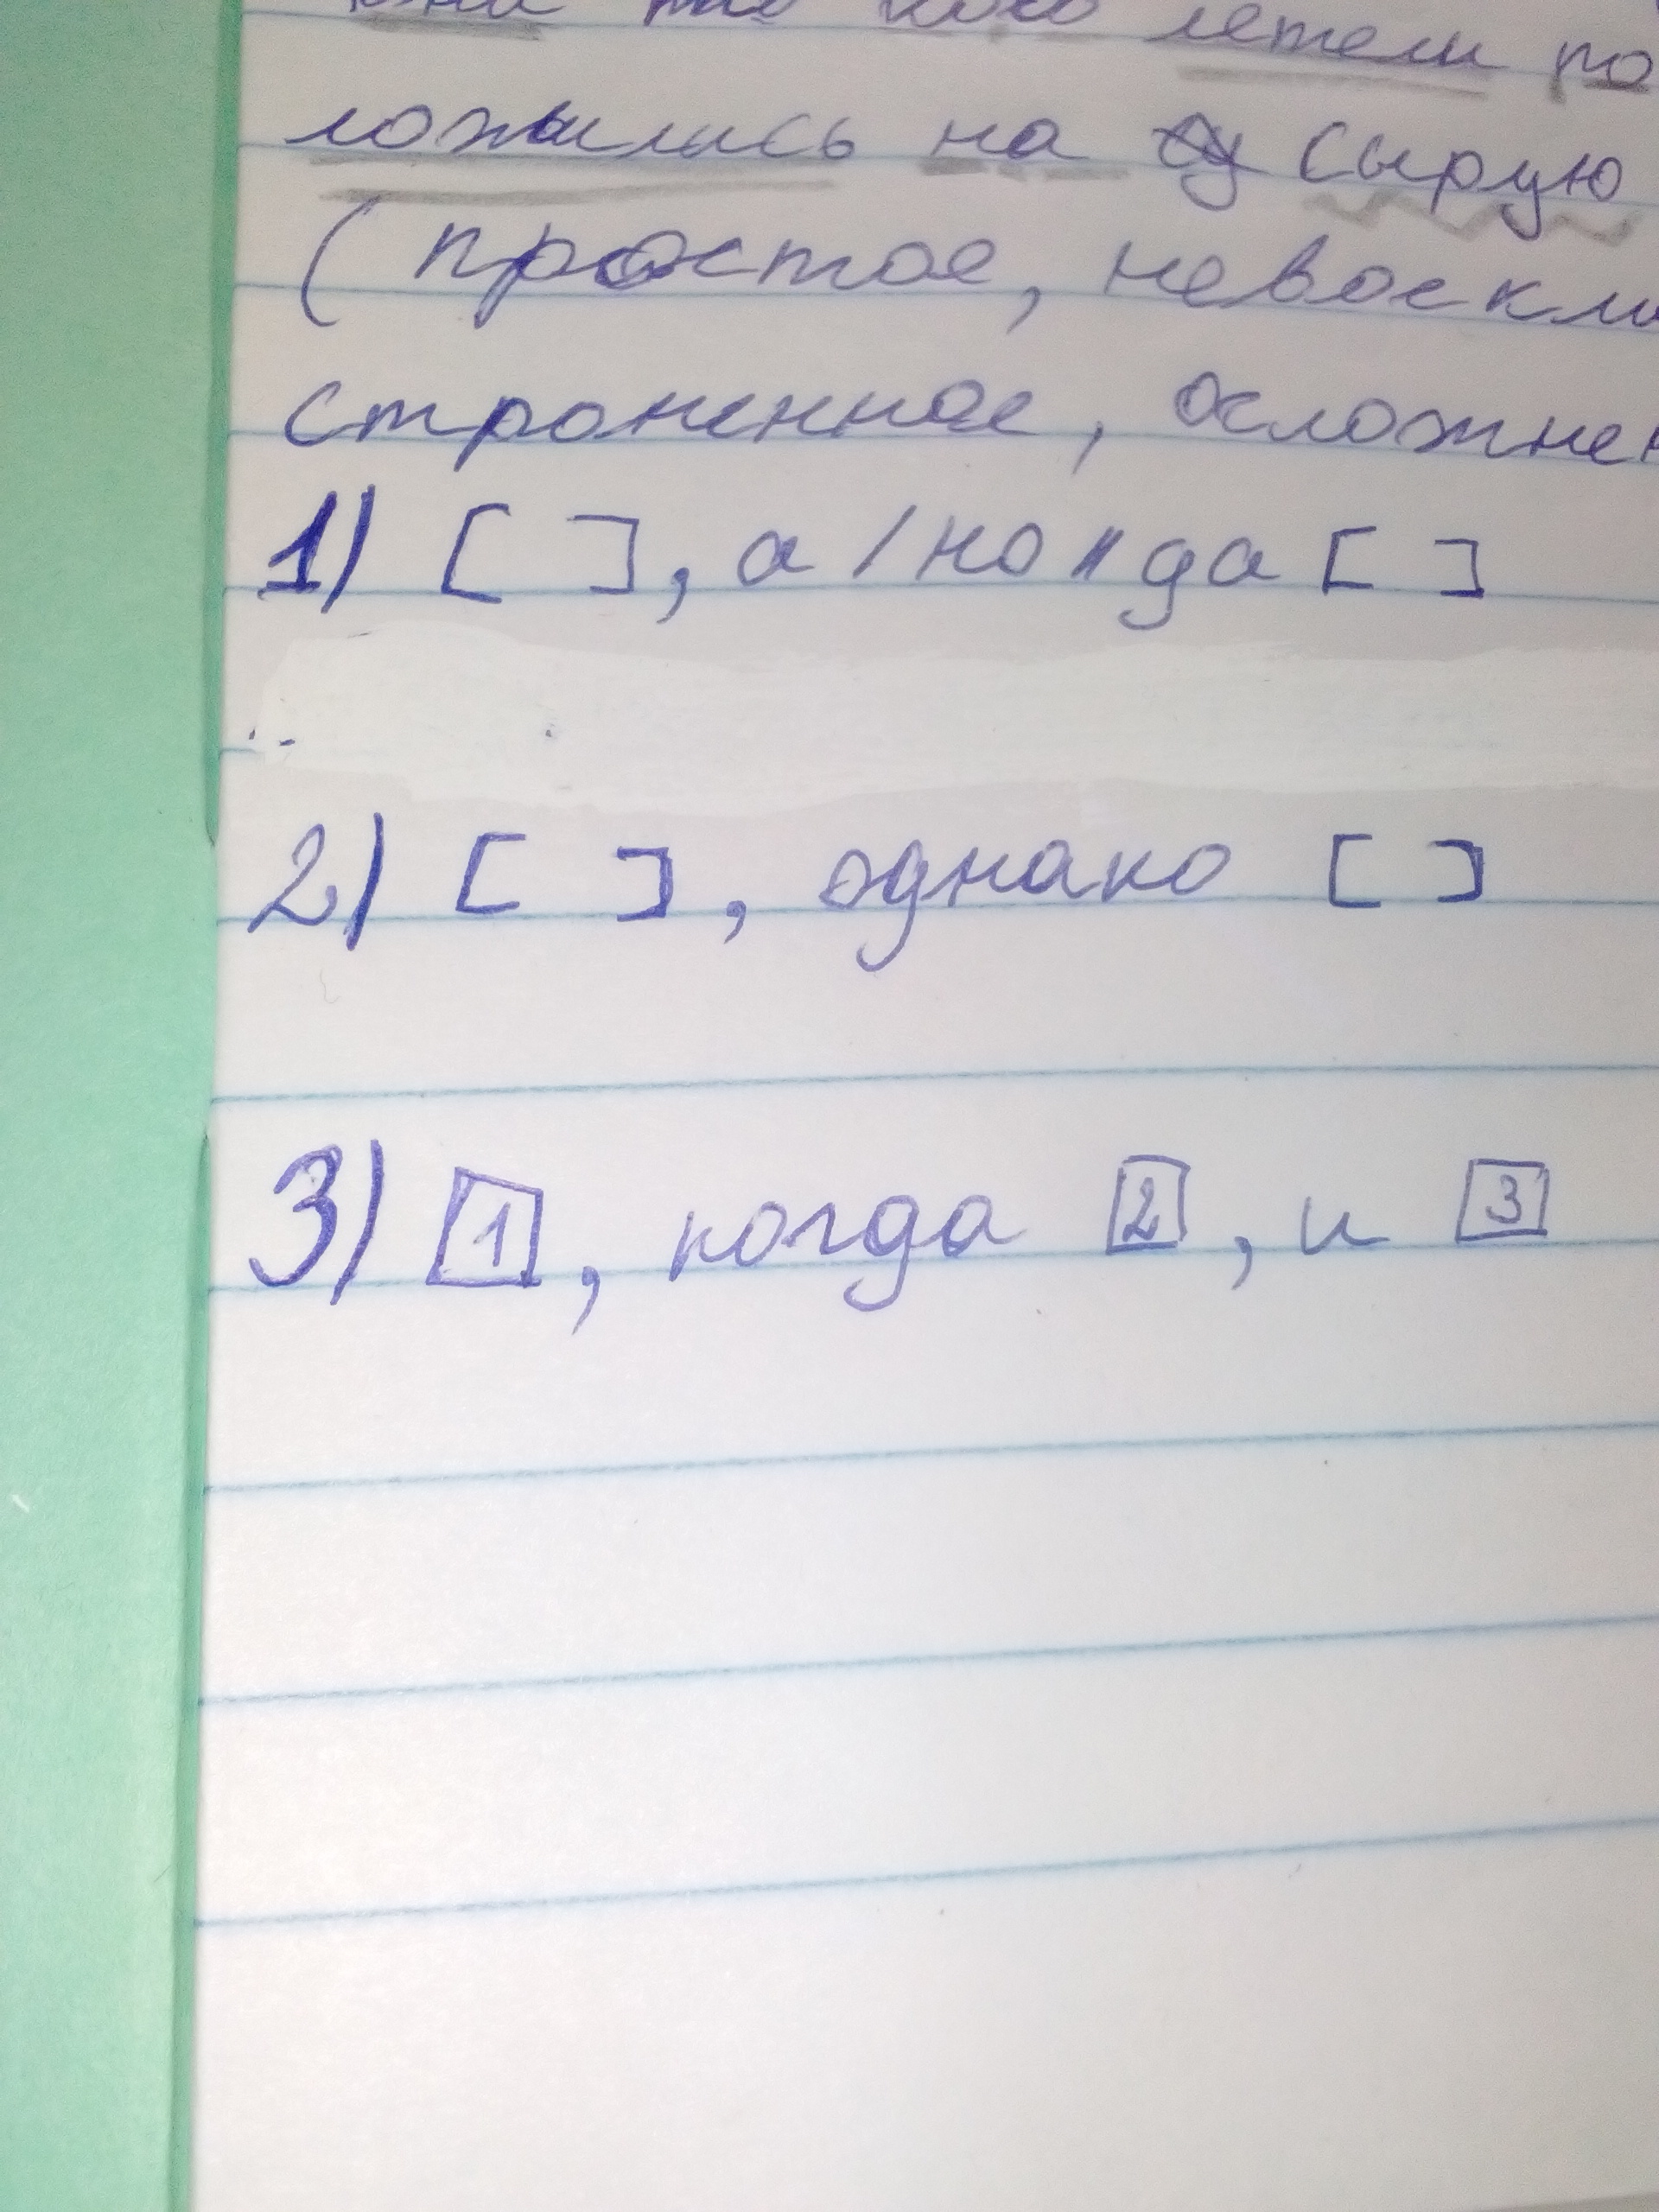 летели по
ложились на сырую
(простое, невоскли
строненное, осложнен
1) [ ], а / но / да [ ]
2) [ ], однако [ ]
3) 1, когда 2, и 3